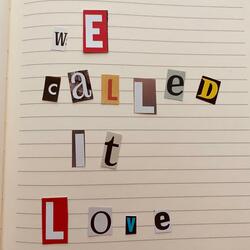 wE
cALLeD
It
Love